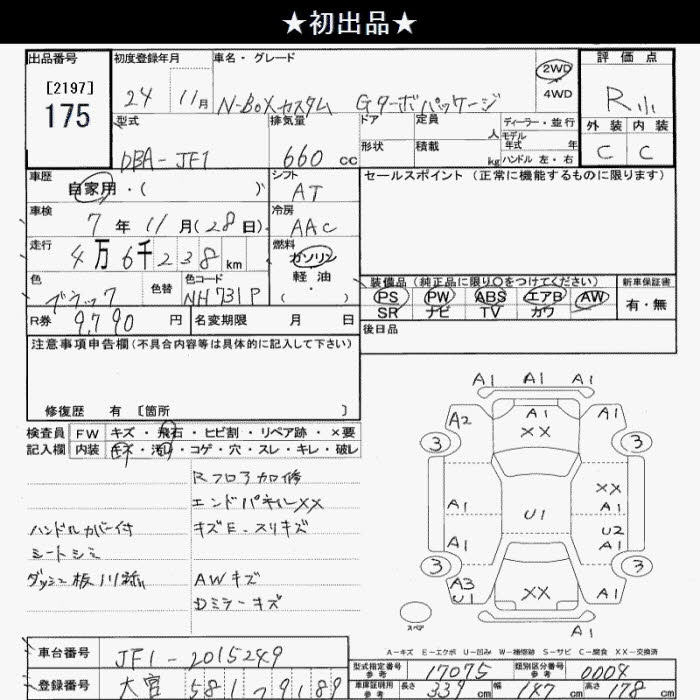 ★初出品★
出品番号 初度登録年月 車名・グレード 2WD 評価点
[2197] 24 11月 N-BOXカスタム Gターボパッケージ 4WD R小
175
型式 排気量 ドア 定員 人 ディーラー・並行 外装 内装
モデル年式 年
DBA-JF1 660cc 形状 積載 kg ハンドル 左・右 C C
車歴 自家用・( ) シフト AT セールスポイント(正常に機能するものに限ります)
車検 7年11月(28日) 冷房 AAC
走行 4万6千238km 燃料 ガソリン
軽油
( )
色 ブラック 色替 色コード NH731P
装備品(純正品に限り○をつけてください) 新車保証書
PS PW ABS エアB AW 有・無
SR ナビ TV カワ
R券 9,790円 名変期限 月 日 後日品
注意事項申告欄(不具合内容等は具体的に記入して下さい)
修復歴 有 [箇所 ]
検査員 FW キズ・飛石・ヒビ割・リペア跡・×要
記入欄 内装 キズ・汚れ・コゲ・穴・スレ・キレ・破レ
Rフロア加修
エンドパネルXX
ハンドルカバー付 キズE・スリキズ
シートシミ
ダッシュ板 AWキズ
Dミラーキズ
A1 A1 A1
A2 A1 A1
XX
3 3
XX
A1 A1
U1
U2
A1 A1
3 3
A3 XX A1
U1
A1
スペア
A-キズ E-エクボ U-凹み W-補修跡 S-サビ C-腐食 XX-交換済
車台番号 JF1-2015249 型式指定番号 参考 17075 類別区分番号 参考 0004
登録番号 大宮 581 9189 車庫証明用 参考 長さ 339cm 幅 147cm 高さ 178cm